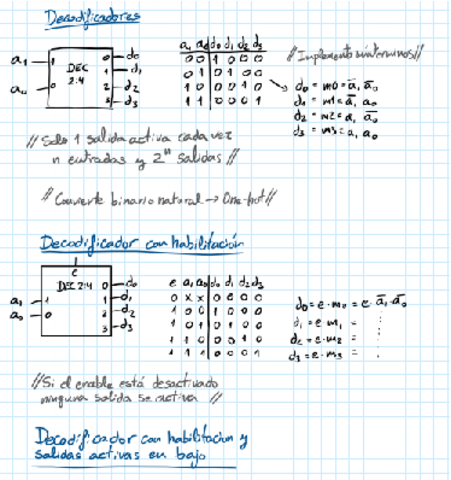 Decodificadores
a₁ 1 DEC 2:4 0 d₀
a₀ 0 1 d₁
2 d₂
3 d₃
a₁ a₀ d₀ d₁ d₂ d₃
0 0 1 0 0 0
0 1 0 1 0 0
1 0 0 0 1 0
1 1 0 0 0 1
// Implementa minterminos //
d₀ = m0 = a̅₁ a̅₀
d₁ = m1 = a̅₁ a₀
d₂ = m2 = a₁ a̅₀
d₃ = m3 = a₁ a₀
// Solo 1 salida activa cada vez
n entradas y 2ⁿ salidas //
// Convierte binario natural → One-hot //
Decodificador con habilitación
e
DEC 2:4 0 d₀
a₁ 1 1 d₁
a₀ 0 2 d₂
3 d₃
e a₁ a₀ d₀ d₁ d₂ d₃
0 X X 0 0 0 0
1 0 0 1 0 0 0
1 0 1 0 1 0 0
1 1 0 0 0 1 0
1 1 1 0 0 0 1
d₀ = e · m₀ = e · a̅₁ a̅₀
d₁ = e · m₁ =
d₂ = e · m₂ =
d₃ = e · m₃ =
// Si el enable está desactivado
ninguna salida se activa //
Decodificador con habilitacion y
salidas activas en bajo